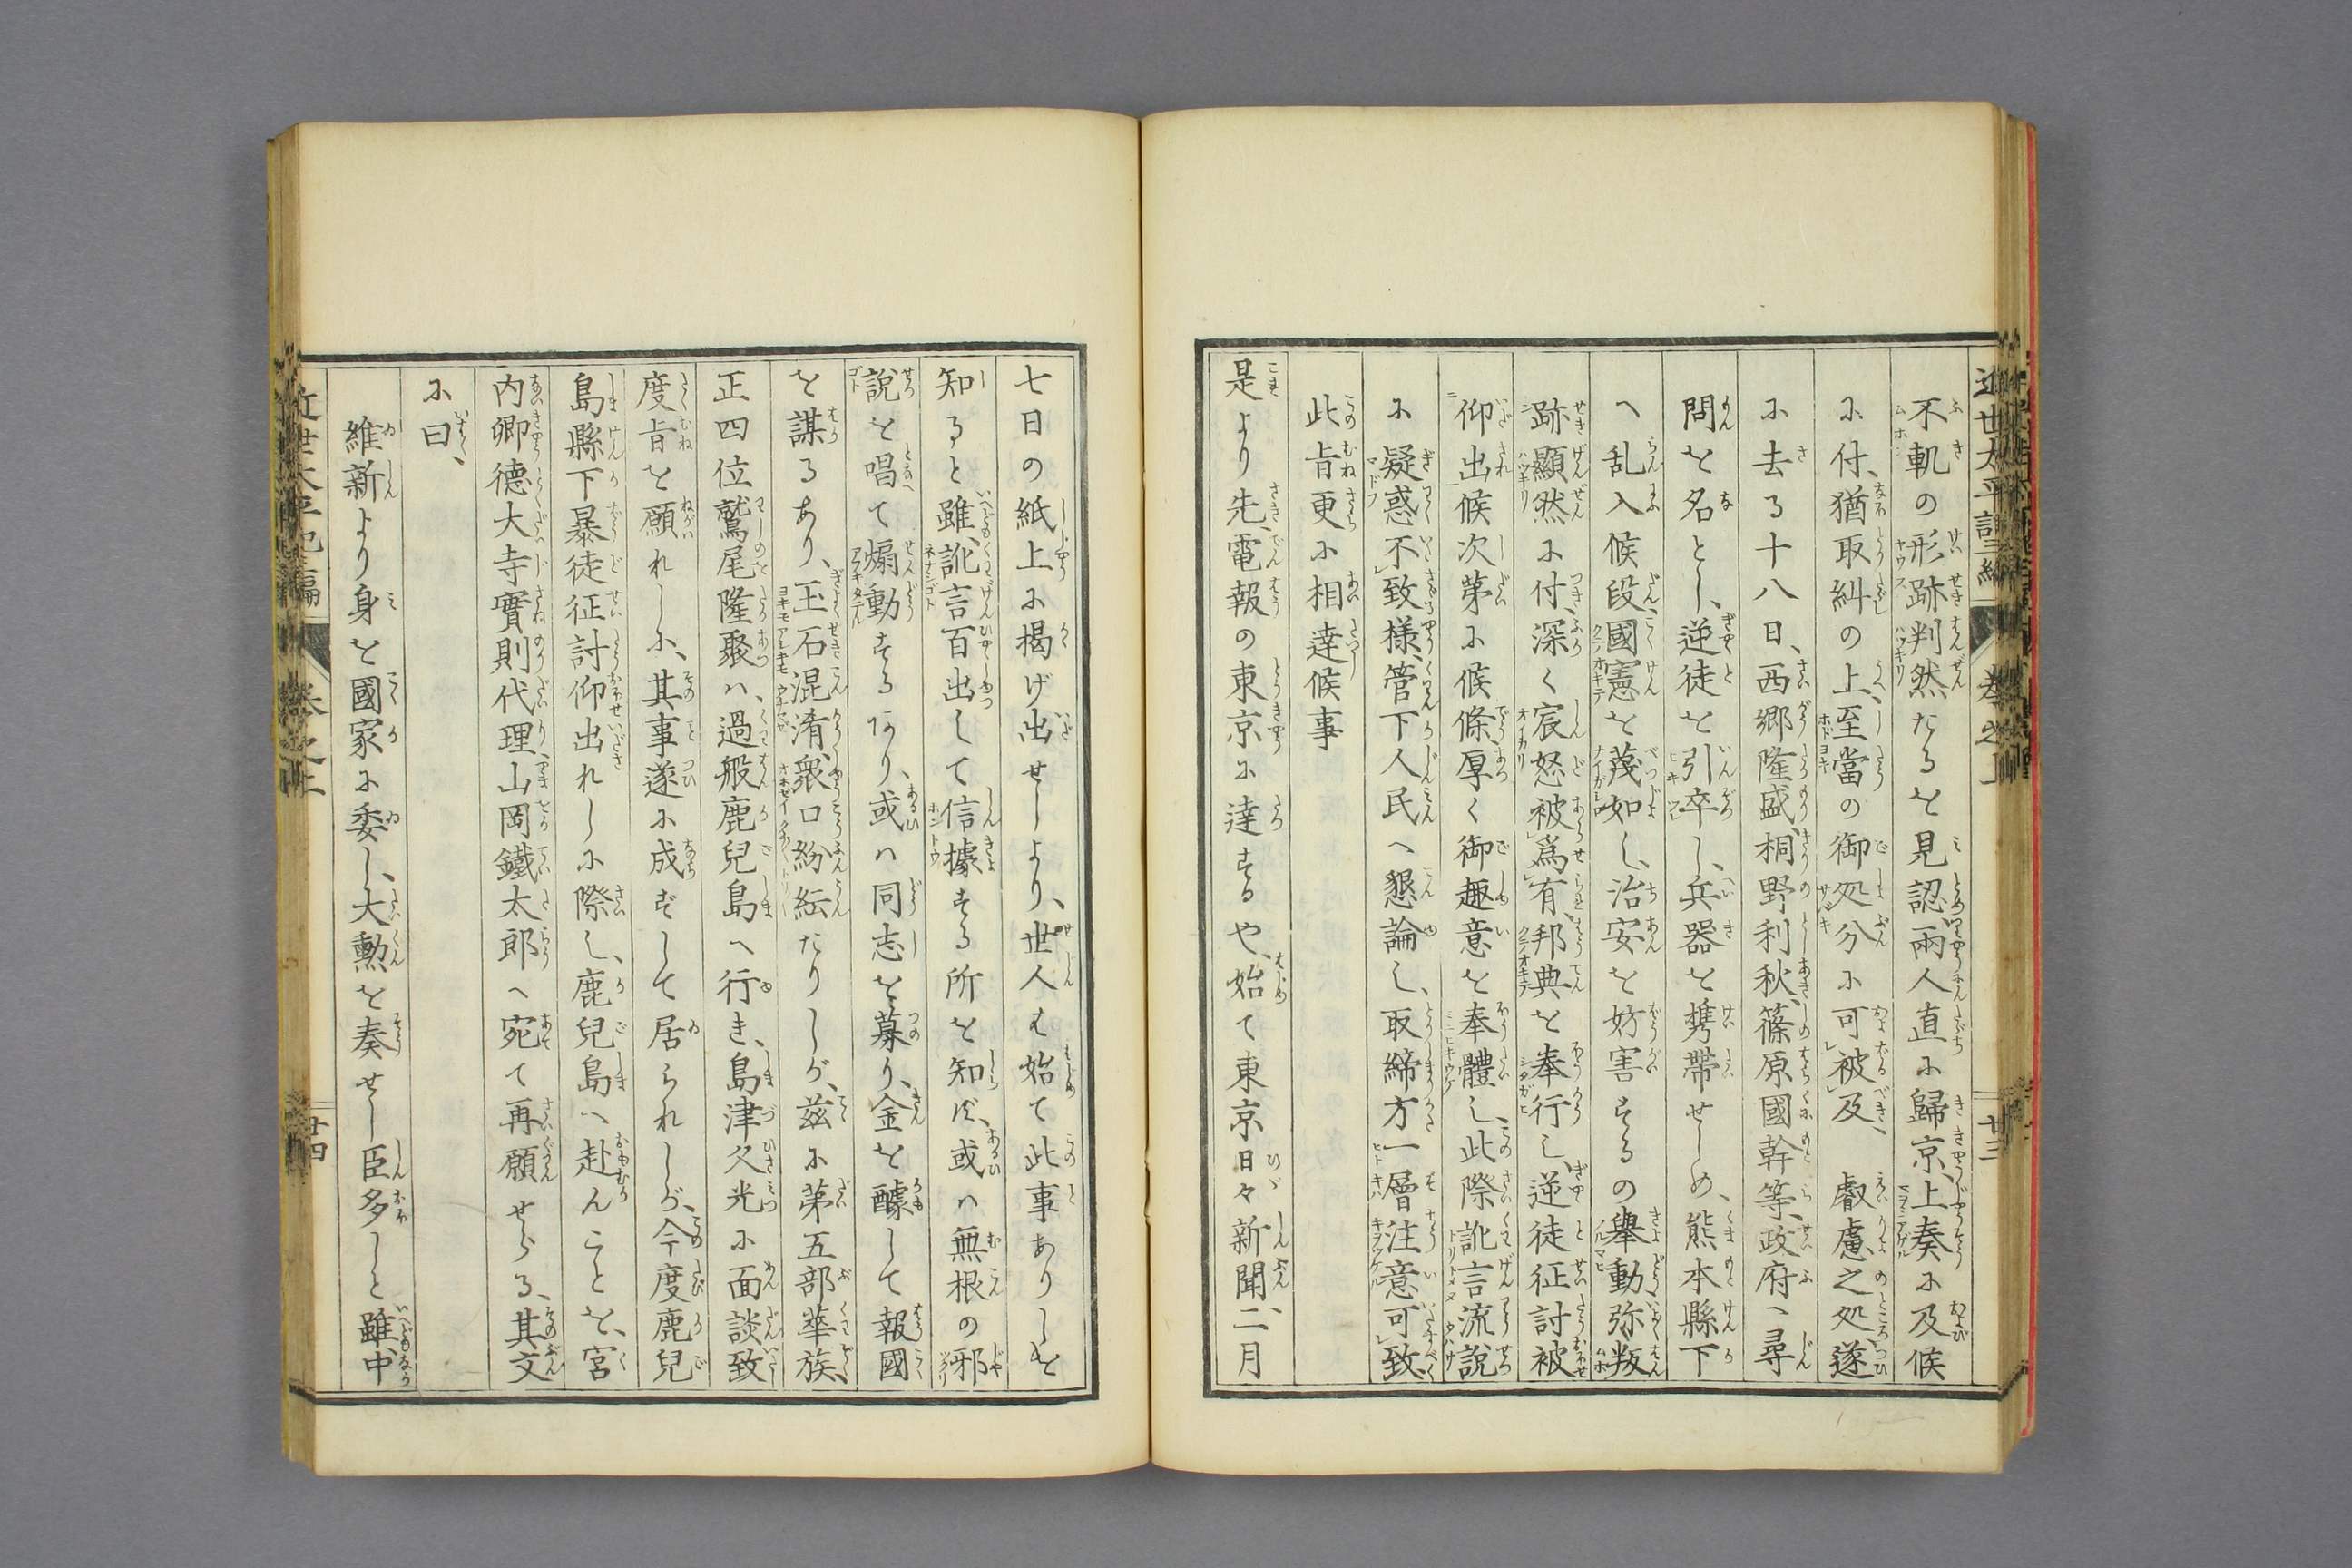 不軌の形跡判然たるを見認、兩人直に歸京、上奏に及候
に付、猶取糾の上、至當の御処分に可被及、 叡慮之処、遂
に去る十八日、西郷隆盛、桐野利秋、篠原國幹等、政府へ尋
問を名とし、逆徒を引卒し、兵器を携帶せしめ、熊本縣下
へ乱入候段、國憲を蔑如し、治安を妨害するの擧動、弥叛
跡顯然に付、深く宸怒被爲有、邦典を奉行し、逆徒征討被
仰出候次第に候條、厚く御趣意を奉體し、此際訛言流説
に疑惑不致樣、管下人民へ懇諭し、取締方一層注意可致、
此旨更に相達候事
是より先、電報の東京に達するや、始て東京日々新聞、二月
七日の紙上に揭げ出せしより、世人も始て此事ありしを
知ると雖、訛言百出して信據する所を知らず、或ハ無根の邪
說を唱て煽動するあり、或ハ同志を募り、金を醵して報國
を謀るあり、玉石混淆、衆口紛紜たりしが、茲に第五部華族、
正四位鷲尾隆聚ハ、過般鹿兒島へ行き、島津久光に面談致
度旨を願れしに、其事遂に成ずして居られしが、今度鹿兒
島縣下暴徒征討仰出れしに際し、鹿兒島へ赴んことを、宮
内卿德大寺實則代理、山岡鐵太郎へ宛て再願せらる、其文
に曰、
維新より身を國家に委し、大勲を奏せし臣多しと雖、中